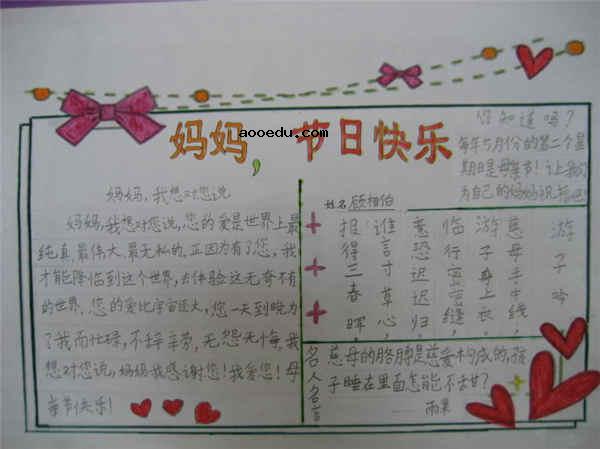 妈妈,节日快乐
aooedu.com
您知道吗?
每年5月份的第二个星
期日是母亲节!让我们
为自己的妈妈祝
妈妈,我想对您说
妈妈,我想对您说,您的爱是世界上最
纯真、最伟大、最无私的。正因为有了您,我
才能降临到这个世界,去体验这无奇不有
的世界。您的爱比宇宙还大,您一天到晚为
了我而忙碌,不辞辛劳,无怨无悔,我
想对您说,妈妈我感谢您!我爱您!母
亲节快乐!
姓名 顾相伯
游子吟
慈母手中线
游子身上衣
临行密密缝
意恐迟迟归
谁言寸草心
报得三春晖
名人名言
慈母的胳膊是慈爱构成的,孩
子睡在里面怎能不甜?
——雨果